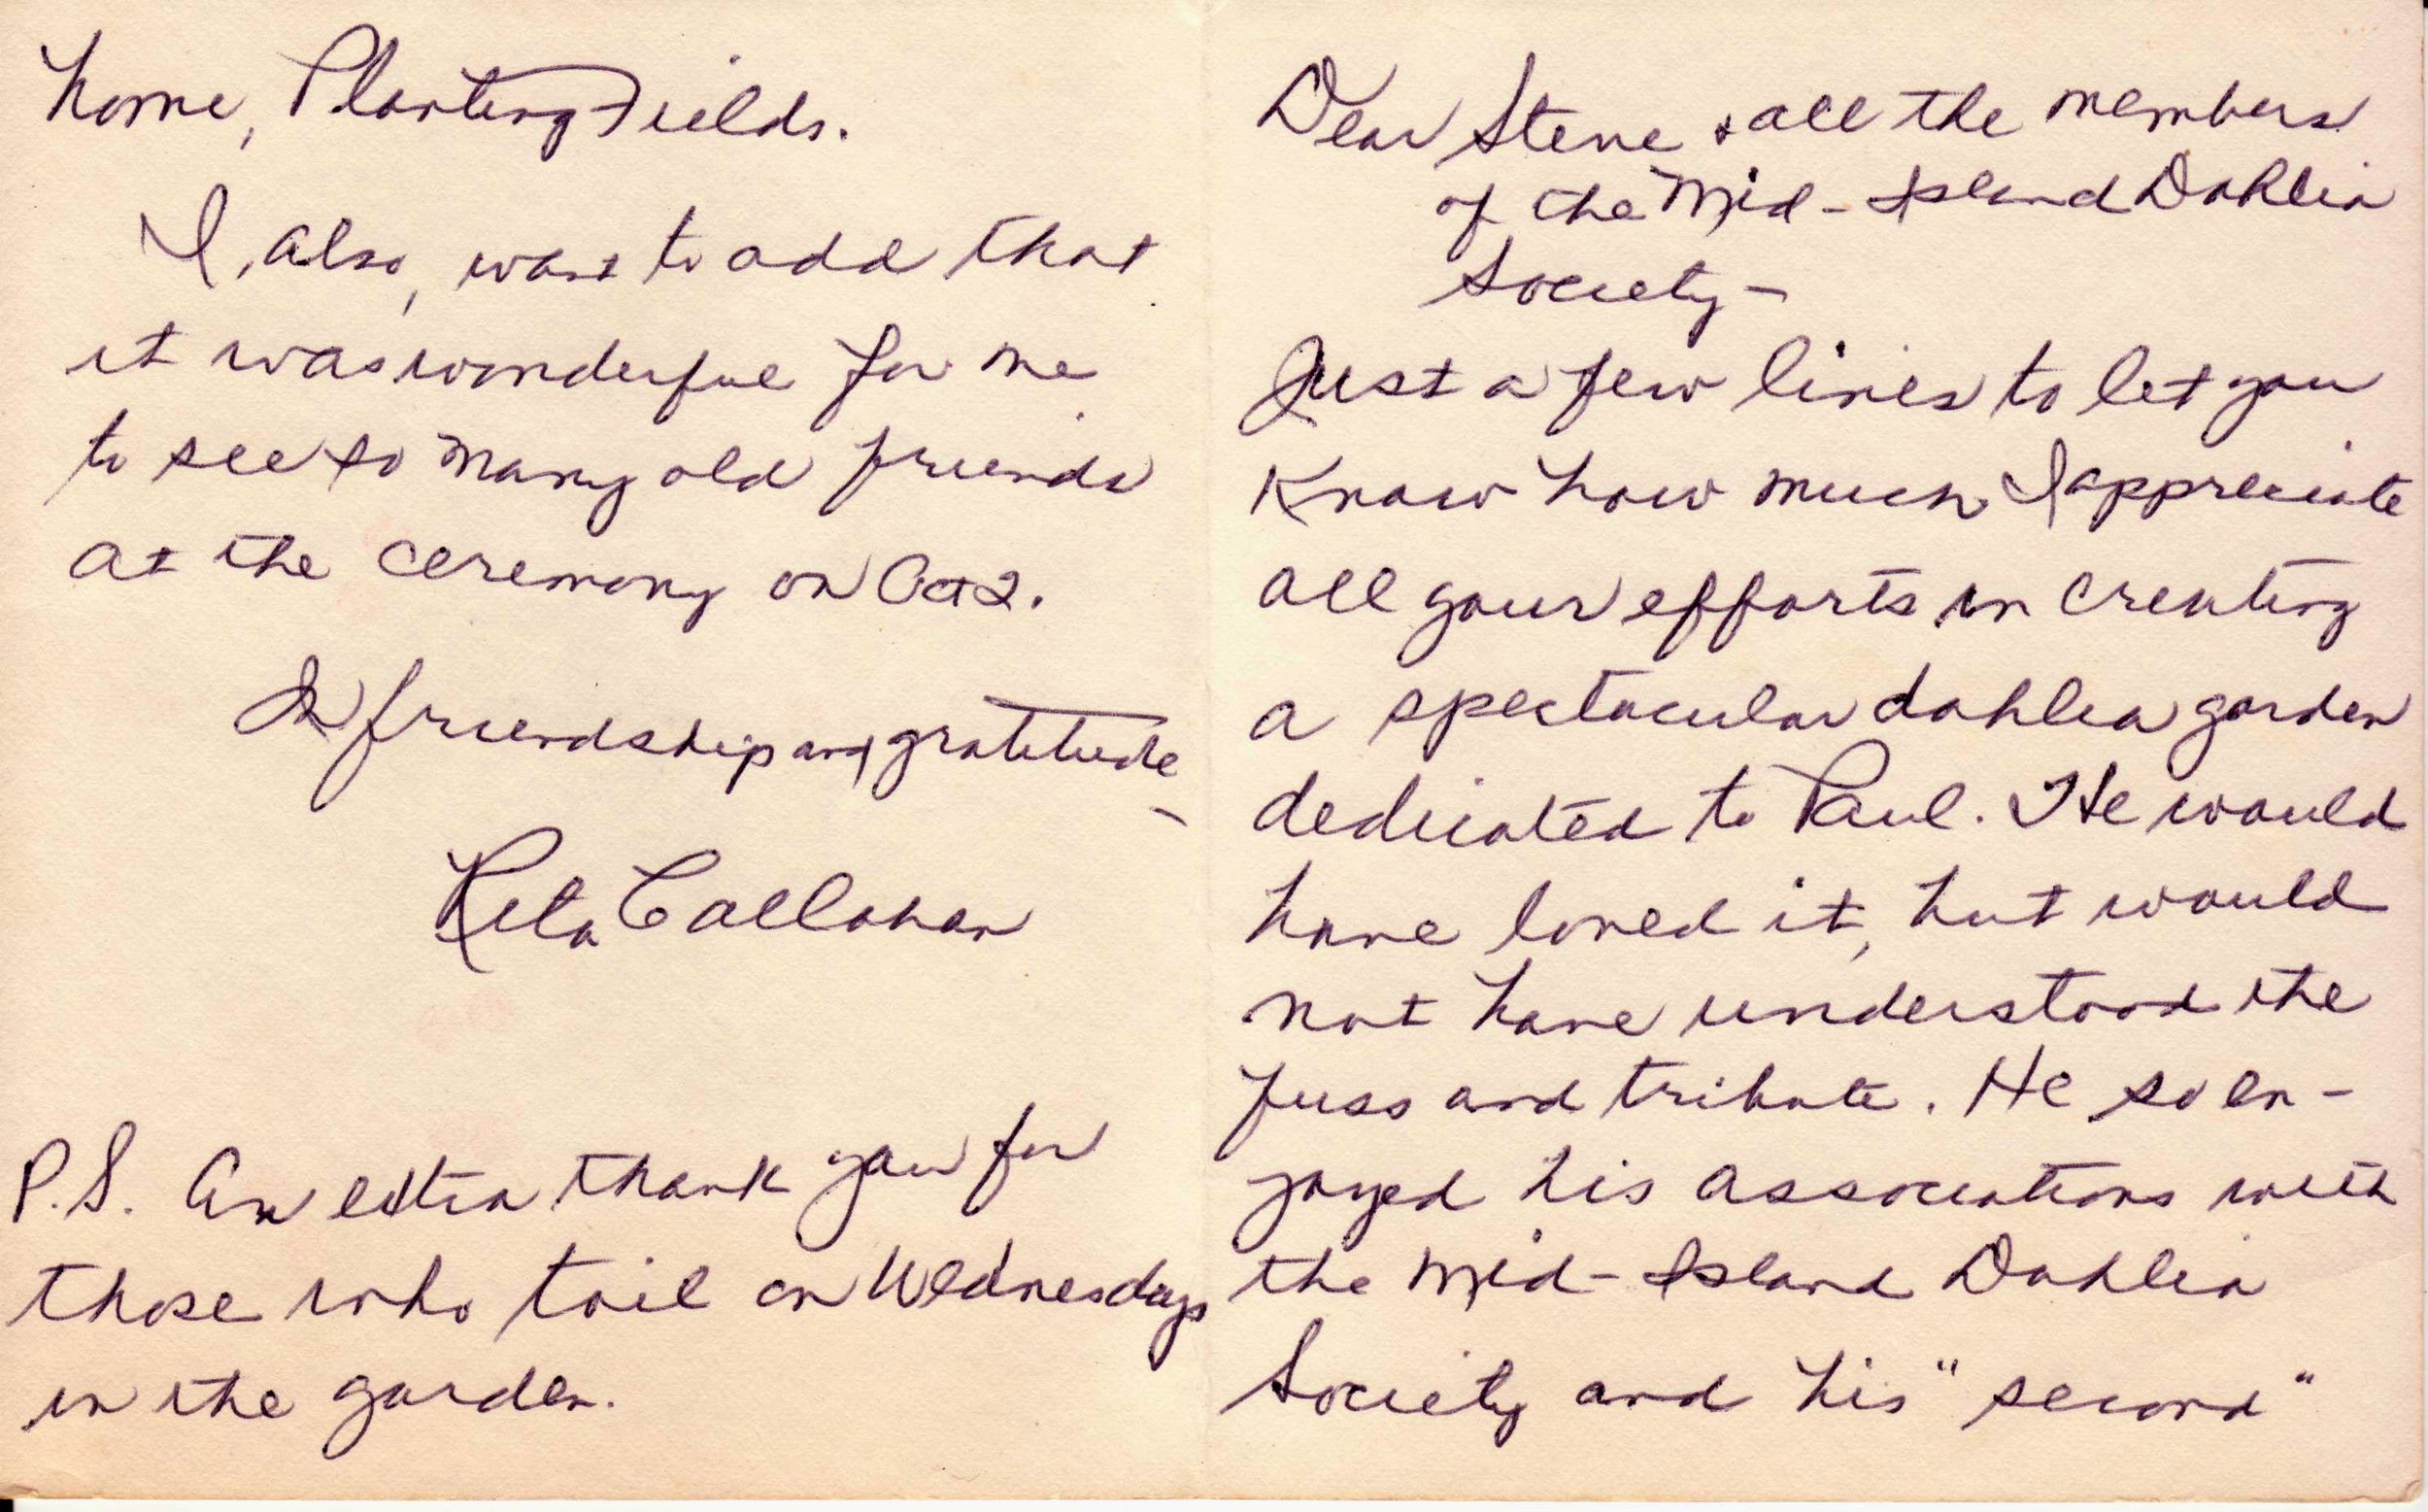 Dear Steve & all the members
of the Mid-Island Dahlia
Society-
Just a few lines to let you
know how much I appreciate
all your efforts in creating
a spectacular dahlia garden
dedicated to Paul. He would
have loved it, but would
not have understood the
fuss and tribute. He so en-
joyed his associations with
the Mid-Island Dahlia
Society and his "second"
home, Planting Fields.
I, also, want to add that
it was wonderful for me
to see so many old friends
at the ceremony on Oct 2.
In friendship and gratitude
-
Rita Callahan
P.S. An extra thank you for
those who toil on Wednesdays
in the garden.